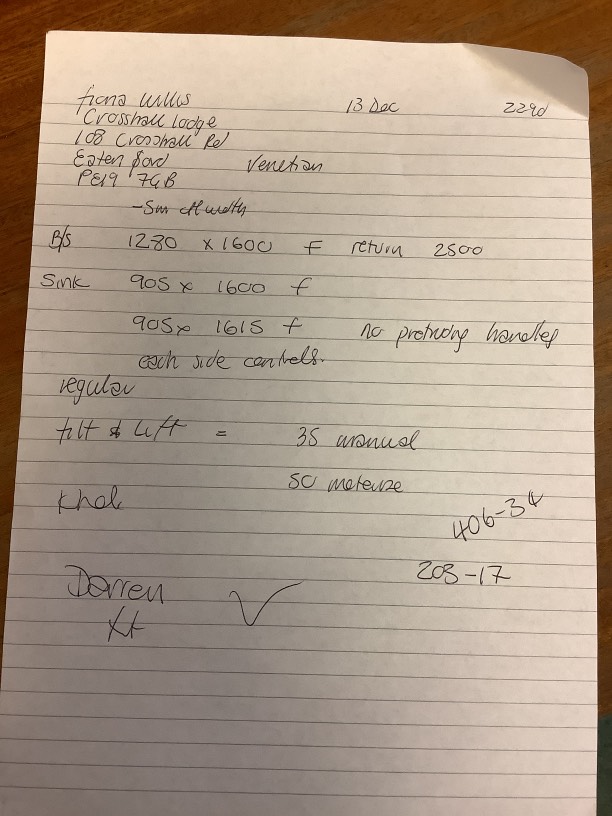 Fiona Willis 13 Dec 229d
Crosshall Lodge
108 Crosshall Rd
Eaten Venetian
PE19 7GB
-5m off width
B/S 1280 x 1600 F return 2500
Sink 905 x 1600 F
905 x 1615 F no protruding handles
each side controls.
regular
tilt & Lift = 35 manual
50
406-34
203-17
Darren